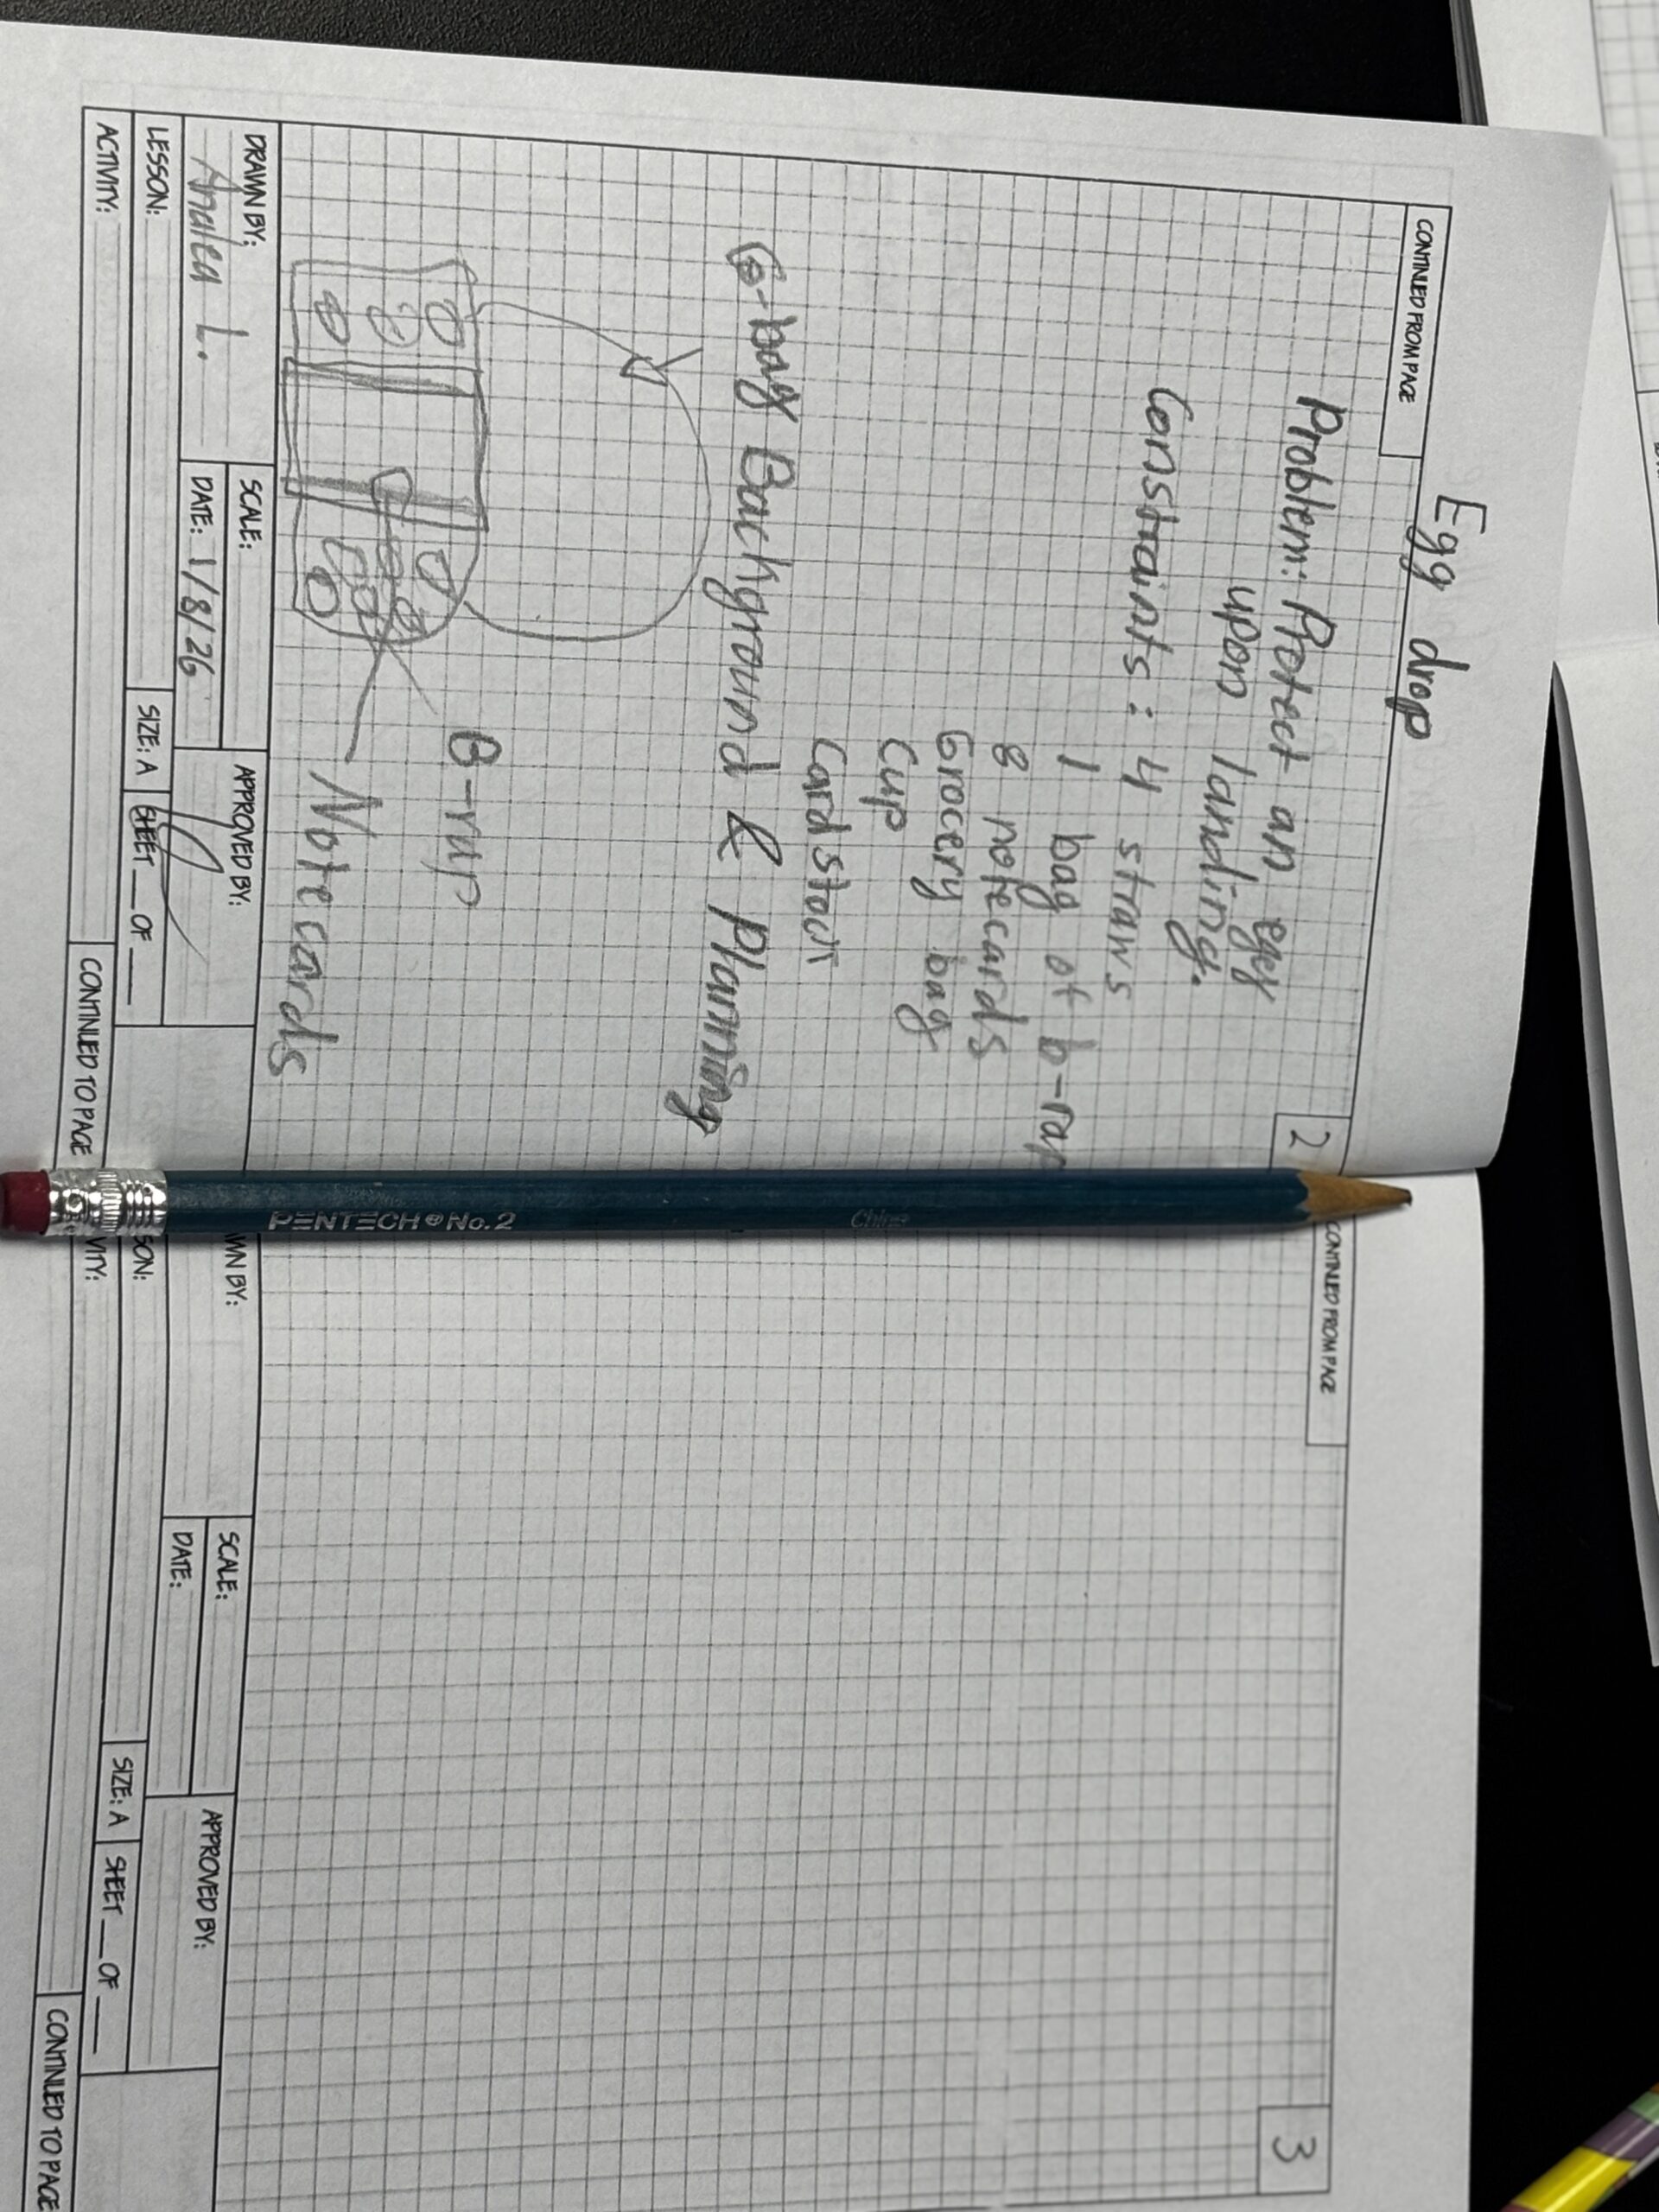 Egg drop
CONTINUED FROM PAGE
2
Problem: Protect an egg
upon landing.
Constraints: 4 straws
1 bag of b-rap
8 notecards
Grocery bag
Cup
Cardstock
G-bag Background & Planning
B-rap
Notecards
DRAWN BY:
SCALE:
APPROVED BY:
DATE: 1/8/26
LESSON:
SIZE: A
SHEET __ OF __
ACTIVITY:
CONTINUED TO PAGE
PENTECH No. 2
China
CONTINUED FROM PAGE
3
WN BY:
SCALE:
APPROVED BY:
DATE:
SON:
SIZE: A
SHEET __ OF __
VITY:
CONTINUED TO PAGE